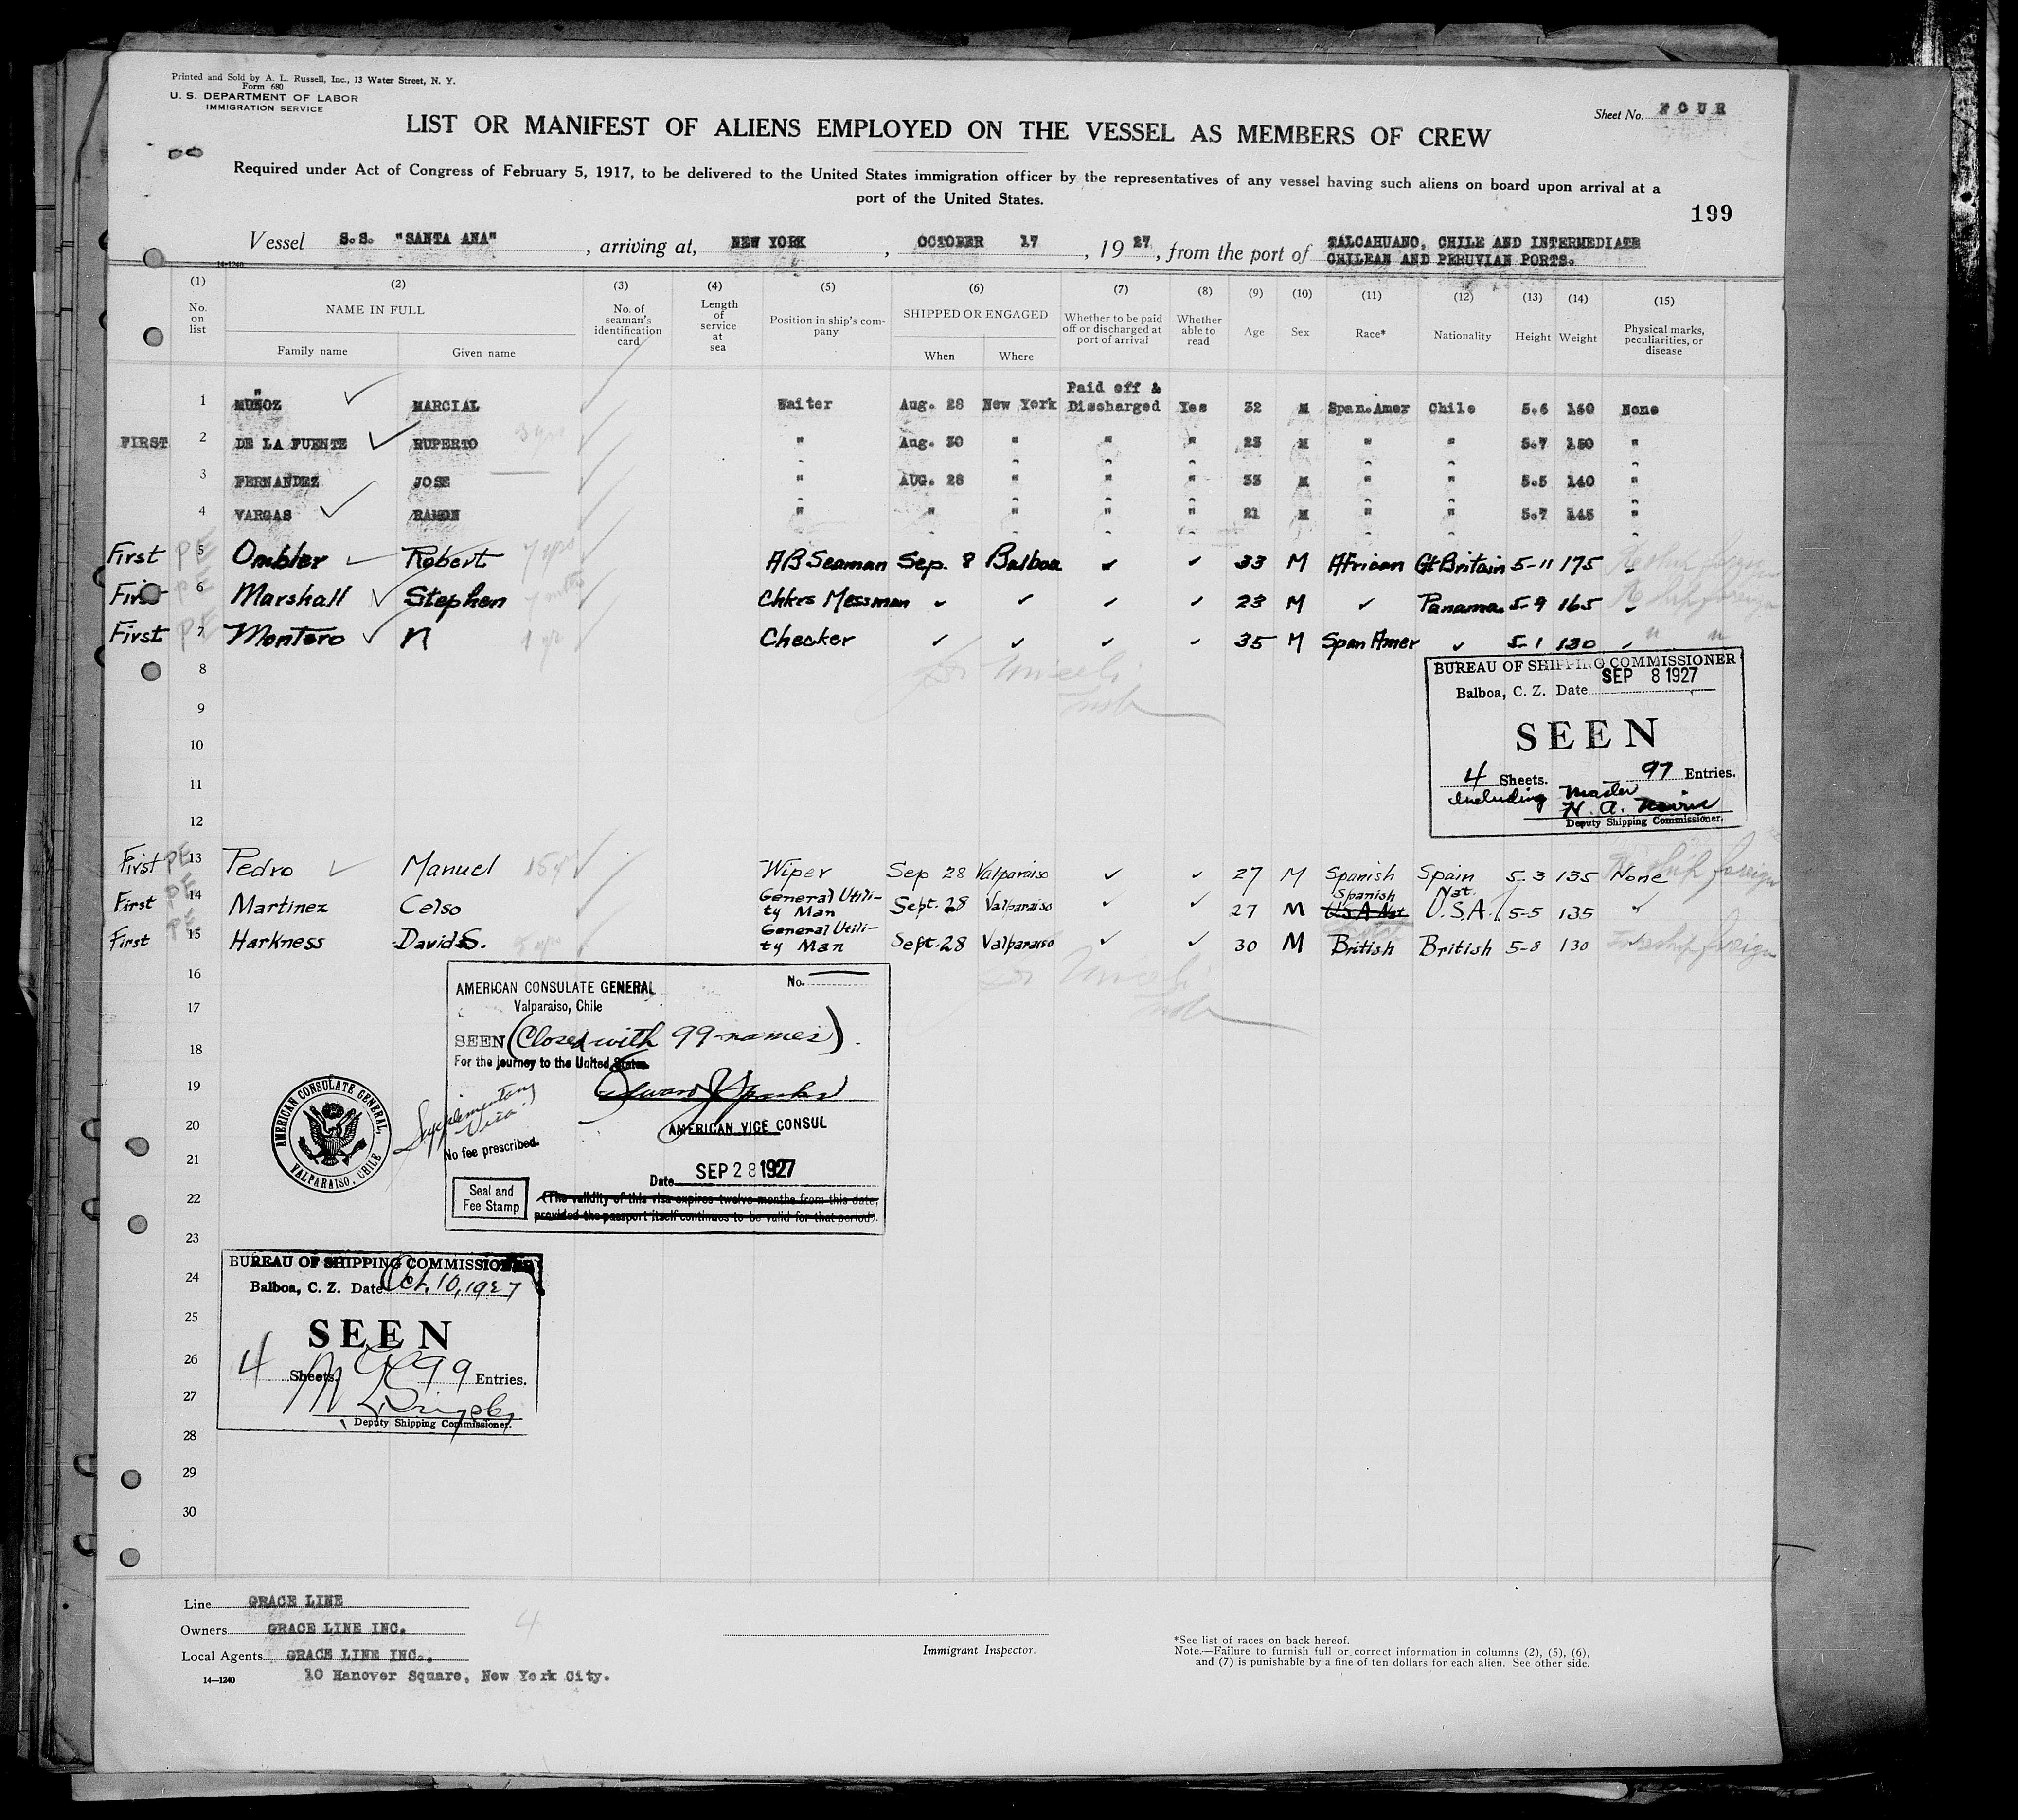 Printed and Sold by A. L. Russell, Inc., 13 Water Street, N. Y.
Form 680
U. S. DEPARTMENT OF LABOR
IMMIGRATION SERVICE
Sheet No. FOUR
LIST OR MANIFEST OF ALIENS EMPLOYED ON THE VESSEL AS MEMBERS OF CREW
Required under Act of Congress of February 5, 1917, to be delivered to the United States immigration officer by the representatives of any vessel having such aliens on board upon arrival at a
port of the United States.
199
Vessel S.S. "SANTA ANA", arriving at, NEW YORK, OCTOBER 17, 1927, from the port of TALCAHUANO, CHILE AND INTERMEDIATE
CHILEAN AND PERUVIAN PORTS.
14-1240
(1) (2) (3) (4) (5) (6) (7) (8) (9) (10) (11) (12) (13) (14) (15)
No. on list
NAME IN FULL
Family name Given name
No. of seaman's identification card
Length of service at sea
Position in ship's company
SHIPPED OR ENGAGED
When Where
Whether to be paid off or discharged at port of arrival
Whether able to read
Age Sex Race* Nationality Height Weight
Physical marks, peculiarities, or disease
1 MUÑOZ MARCIAL Waiter Aug. 28 New York Paid off & Discharged Yes 32 M Span.Amer Chile 5.6 160 None
FIRST 2 DE LA FUENTE RUPERTO " Aug. 30 " " " 23 M " " 5.7 150 "
3 FERNANDEZ JOSE " AUG. 28 " " " 33 M " " 5.5 140 "
4 VARGAS RAMON " " " " " 21 M " " 5.7 145 "
First PE 5 Ombler Robert 7 yrs AB Seaman Sep. 8 Balboa ✓ ✓ 33 M African Gt Britain 5-11 175
First PE 6 Marshall Stephen Chkrs Messman ✓ ✓ ✓ ✓ 23 M ✓ Panama 5-9 165
First PE 7 Montero N 1 yr Checker ✓ ✓ ✓ ✓ 35 M Span Amer ✓ 5-1 130 ✓
8
9
10
11
12
BUREAU OF SHIPPING COMMISSIONER
Balboa, C. Z. Date SEP 8 1927
SEEN
4 Sheets. 97 Entries.
including Master
H. A.
Deputy Shipping Commissioner.
First PE 13 Pedro Manuel 15 yr Wiper Sep 28 Valparaiso ✓ ✓ 27 M Spanish Spain 5-3 135 None
First PE 14 Martinez Celso General Utility Man Sept. 28 Valparaiso ✓ ✓ 27 M Spanish U.S.A Nat Nat. U.S.A. 5-5 135 "
First PE 15 Harkness David S. General Utility Man Sept-28 Valparaiso ✓ ✓ 30 M British British 5-8 130
16
17
18
19
20
21
22
23
24
25
26
27
28
29
30
AMERICAN CONSULATE GENERAL No.
Valparaiso, Chile
SEEN (Closed with 99 names).
For the journey to the United States
Supplementary Visa
AMERICAN VICE CONSUL
No fee prescribed.
Date SEP 28 1927
Seal and
Fee Stamp
(The validity of this visa expires twelve months from this date,
provided the passport itself continues to be valid for that period).
AMERICAN CONSULATE GENERAL, VALPARAISO, CHILE
BUREAU OF SHIPPING COMMISSIONER
Balboa, C. Z. Date Oct. 10, 1927
SEEN
4 Sheets. 99 Entries.
Deputy Shipping Commissioner.
Line GRACE LINE
Owners GRACE LINE INC.
Local Agents GRACE LINE INC.,
10 Hanover Square, New York City.
4
14—1240
Immigrant Inspector.
*See list of races on back hereof.
Note.—Failure to furnish full or correct information in columns (2), (5), (6),
and (7) is punishable by a fine of ten dollars for each alien. See other side.